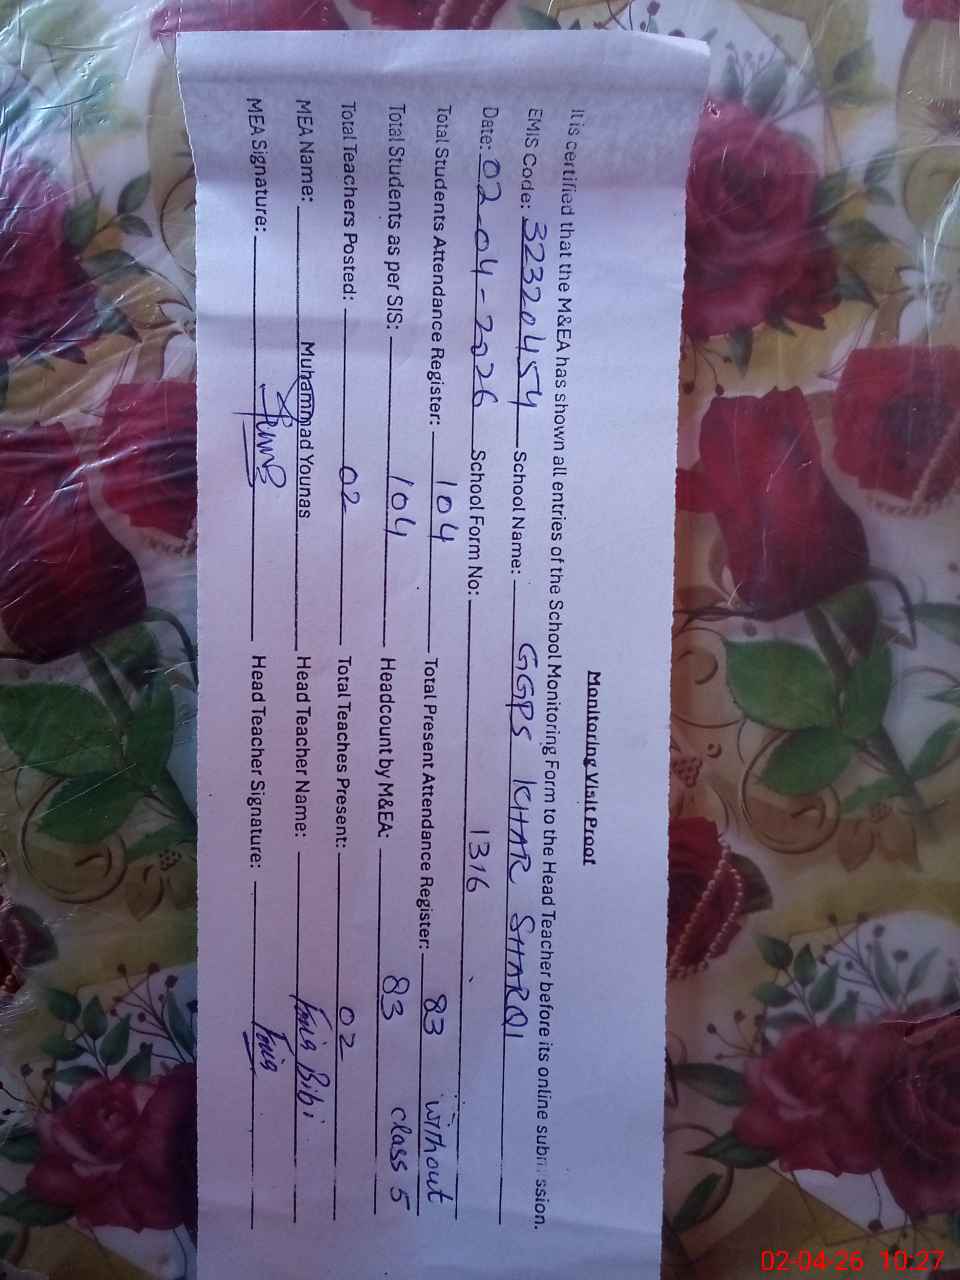 Monitoring Visit Proof
It is certified that the M&EA has shown all entries of the School Monitoring Form to the Head Teacher before its online submission.
EMIS Code: 32320454 School Name: GGPS KHAR SHARQI
Date: 02-04-2026 School Form No: 1316
Total Students Attendance Register: 104 Total Present Attendance Register: 83 without
Total Students as per SIS: 104 Headcount by M&EA: 83 class 5
Total Teachers Posted: 02 Total Teaches Present: 02
MEA Name: Muhammad Younas Head Teacher Name: Bibi
MEA Signature: Head Teacher Signature:
02-04-26 10:27